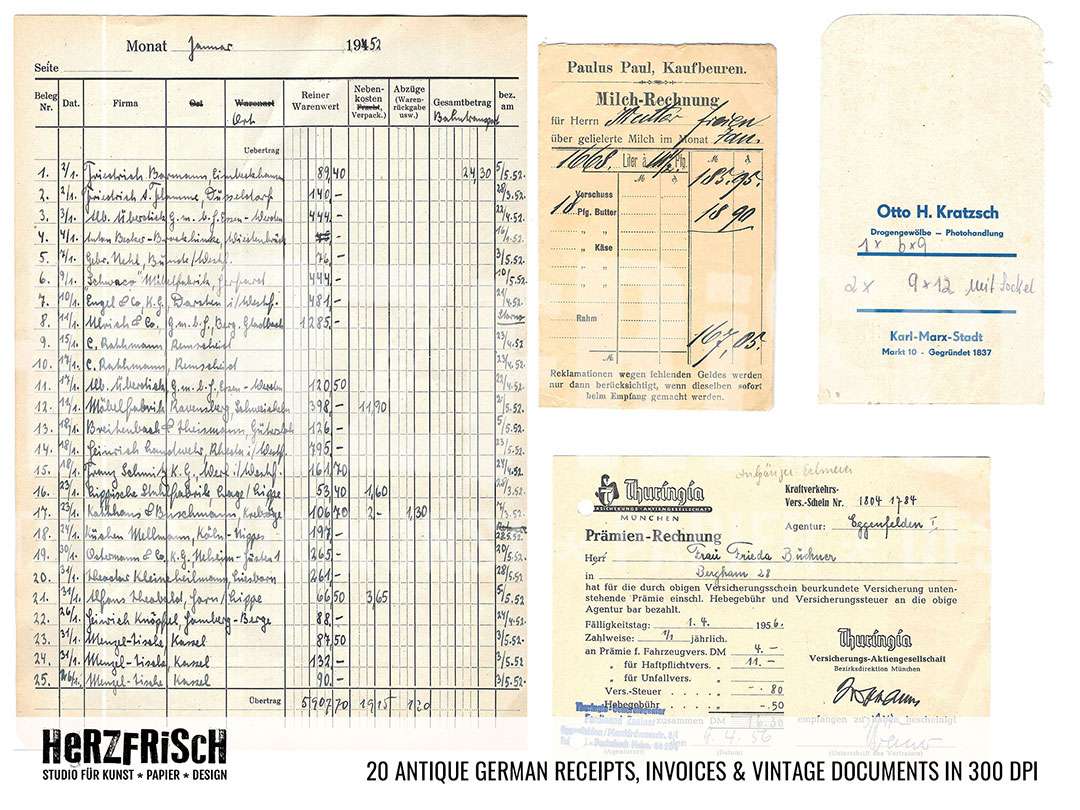 Monat Januar 1952
Seite
Beleg Nr. Dat. Firma Ort Warenart Reiner Warenwert Neben- kosten Fracht, Verpack.) Abzüge (Waren- rückgabe usw.) Gesamtbetrag bez. am
Ort Bahntransport
Uebertrag
1. 2/1. Friedrich 89,40 24,30 5/5.52.
2. 2/1. Friedrich A. Flamme, Düsseldorf 140,- 28/3.52.
3. 3/1. G.m.b.H. Essen-Werden 444,- 22/4.52.
4. 4/1. Anton 16/1.52.
5. 7/1. Gebr. Bünde/Westf. 76,- 3/5.52.
6. 9/1. "Schwaco" Möbelfabrik, 444,- 10/5.52.
7. 10/1. Engel & Co. K.G., Dorsten i/Westf. 481,- 21/4.52.
8. 11/1. Ulrich & Co. G.m.b.H., Berg. Gladbach 1285,- Storno
9. 15/1. C. Rathmann Remscheid 23/4.52.
10. 17/1. C. Rathmann Remscheid 23/4.52.
11. 17/1. G.m.b.H. Essen-Werden 120,50 22/4.52.
12. Möbelfabrik Ravensberg, 398,- 11,90 5.52.
13. 18/1. Breitenbach & Theismann, Gütersloh 126,- 5/5.52.
14. 18/1. Heinrich Landwehr, Rheda i/Westf. 795,- 23/5.52.
15. 18/1. Franz Schmitz K.G., Werl i/Westf. 161,70 24/4.52.
16. 23/1. Lippische Stuhlfabrik Lage/Lippe 53,40 1,60 28/3.52.
17. 23/1. Kalthaus & Buschmann, 106,70 2,- 1,30 7/3.52.
18. 24/1. Küchen Mellmann, Köln-Nippes 197,- 28.5.52.
19. 30/1. Ostermann & Co. K.G., Neheim-Hüsten 1 265,- 20/5.52.
20. 31/1. Theodor Kleineheilmann, 261,- 28/5.52.
21. 31/1. Alfons Theobald, Horn/Lippe 66,50 3,65 5/5.52.
22. 26/1. Heinrich Knöpfel, Homberg-Berge 88,- 24/4.52.
23. 31/1. Menzel-Tische, Kassel 87,50 3/5.52.
24. 31/1. Menzel-Tische, Kassel 132,- 3/5.52.
25. Menzel-Tische, Kassel 90,- 3/5.52.
Übertrag 5907,70 19,15 1,20
Paulus Paul, Kaufbeuren.
Milch-Rechnung
für Herrn
über gelieferte Milch im Monat Jan.
1668. Liter à Pfg.
ℳ ₰ ℳ ₰
185.95.
Vorschuss
18 Pfg. Butter 18 90
" "
" Käse
" "
" "
Rahm
167,05.
ℳ
Reklamationen wegen fehlenden Geldes werden
nur dann berücksichtigt, wenn dieselben sofort
beim Empfang gemacht werden.
Otto H. Kratzsch
Drogengewölbe – Photohandlung
1 x 6x9
2 x 9x12 mit Sockel
Karl-Marx-Stadt
Markt 10 - Gegründet 1837
Anhänger
Thuringia
VERSICHERUNGS-AKTIENGESELLSCHAFT
MÜNCHEN
Kraftverkehrs-
Vers.-Schein Nr. 1804 1784
Agentur: Eggenfelden I
Prämien-Rechnung
Herr Frau Frieda Büchner
in Bergham 28
hat für die durch obigen Versicherungsschein beurkundete Versicherung unten-
stehende Prämie einschl. Hebegebühr und Versicherungssteuer an die obige
Agentur bar bezahlt.
Fälligkeitstag: 1. 4. 1956.
Zahlweise: 1/1 jährlich.
an Prämie f. Fahrzeugvers. DM 4.—
" " für Haftpflichtvers. " 11.—
" " für Unfallvers. "
Vers.-Steuer " -. 80
Hebegebühr " -.50
zusammen DM 16.30
9. 4. 56
(Agentur) (Datum)
Thuringia
Versicherungs-Aktiengesellschaft
Bezirksdirektion München
empfangen zu haben bescheinigt
(Unterschrift des Vertreters)
HERZFRISCH
STUDIO FÜR KUNST ★ PAPIER ★ DESIGN
20 ANTIQUE GERMAN RECEIPTS, INVOICES & VINTAGE DOCUMENTS IN 300 DPI